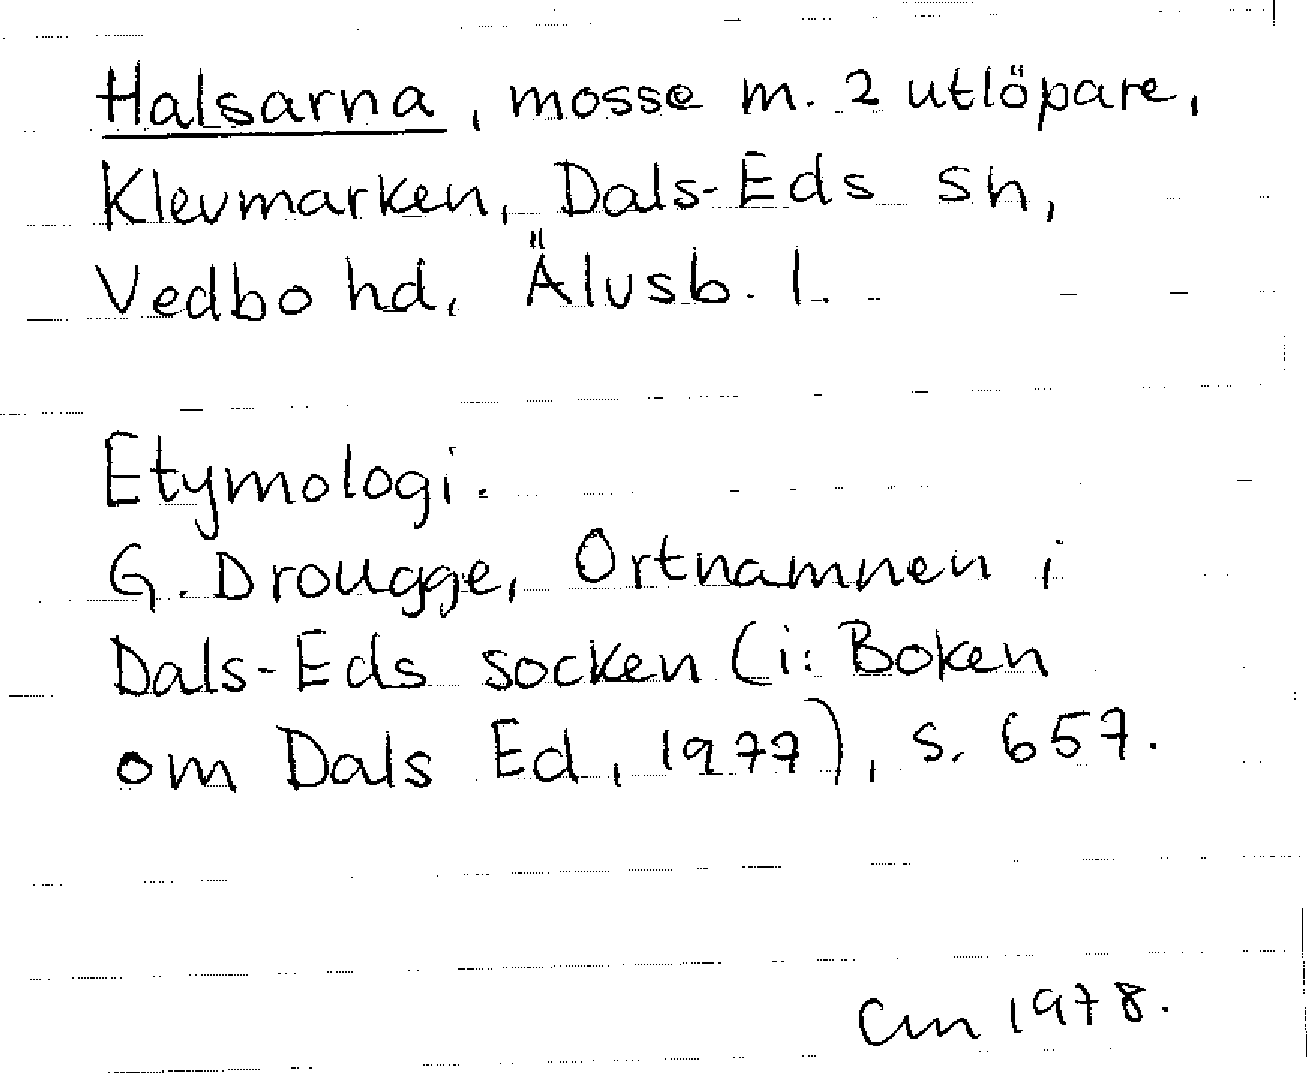 Halsarna, mosse m. 2 utlöpare,
Klevmarken, Dals-Eds sn,
Vedbo hd, Älvsb. l.
Etymologi.
G. Drougge, Ortnamnen i
Dals-Eds socken (i: Boken
om Dals Ed, 1977), s. 657.
1978.